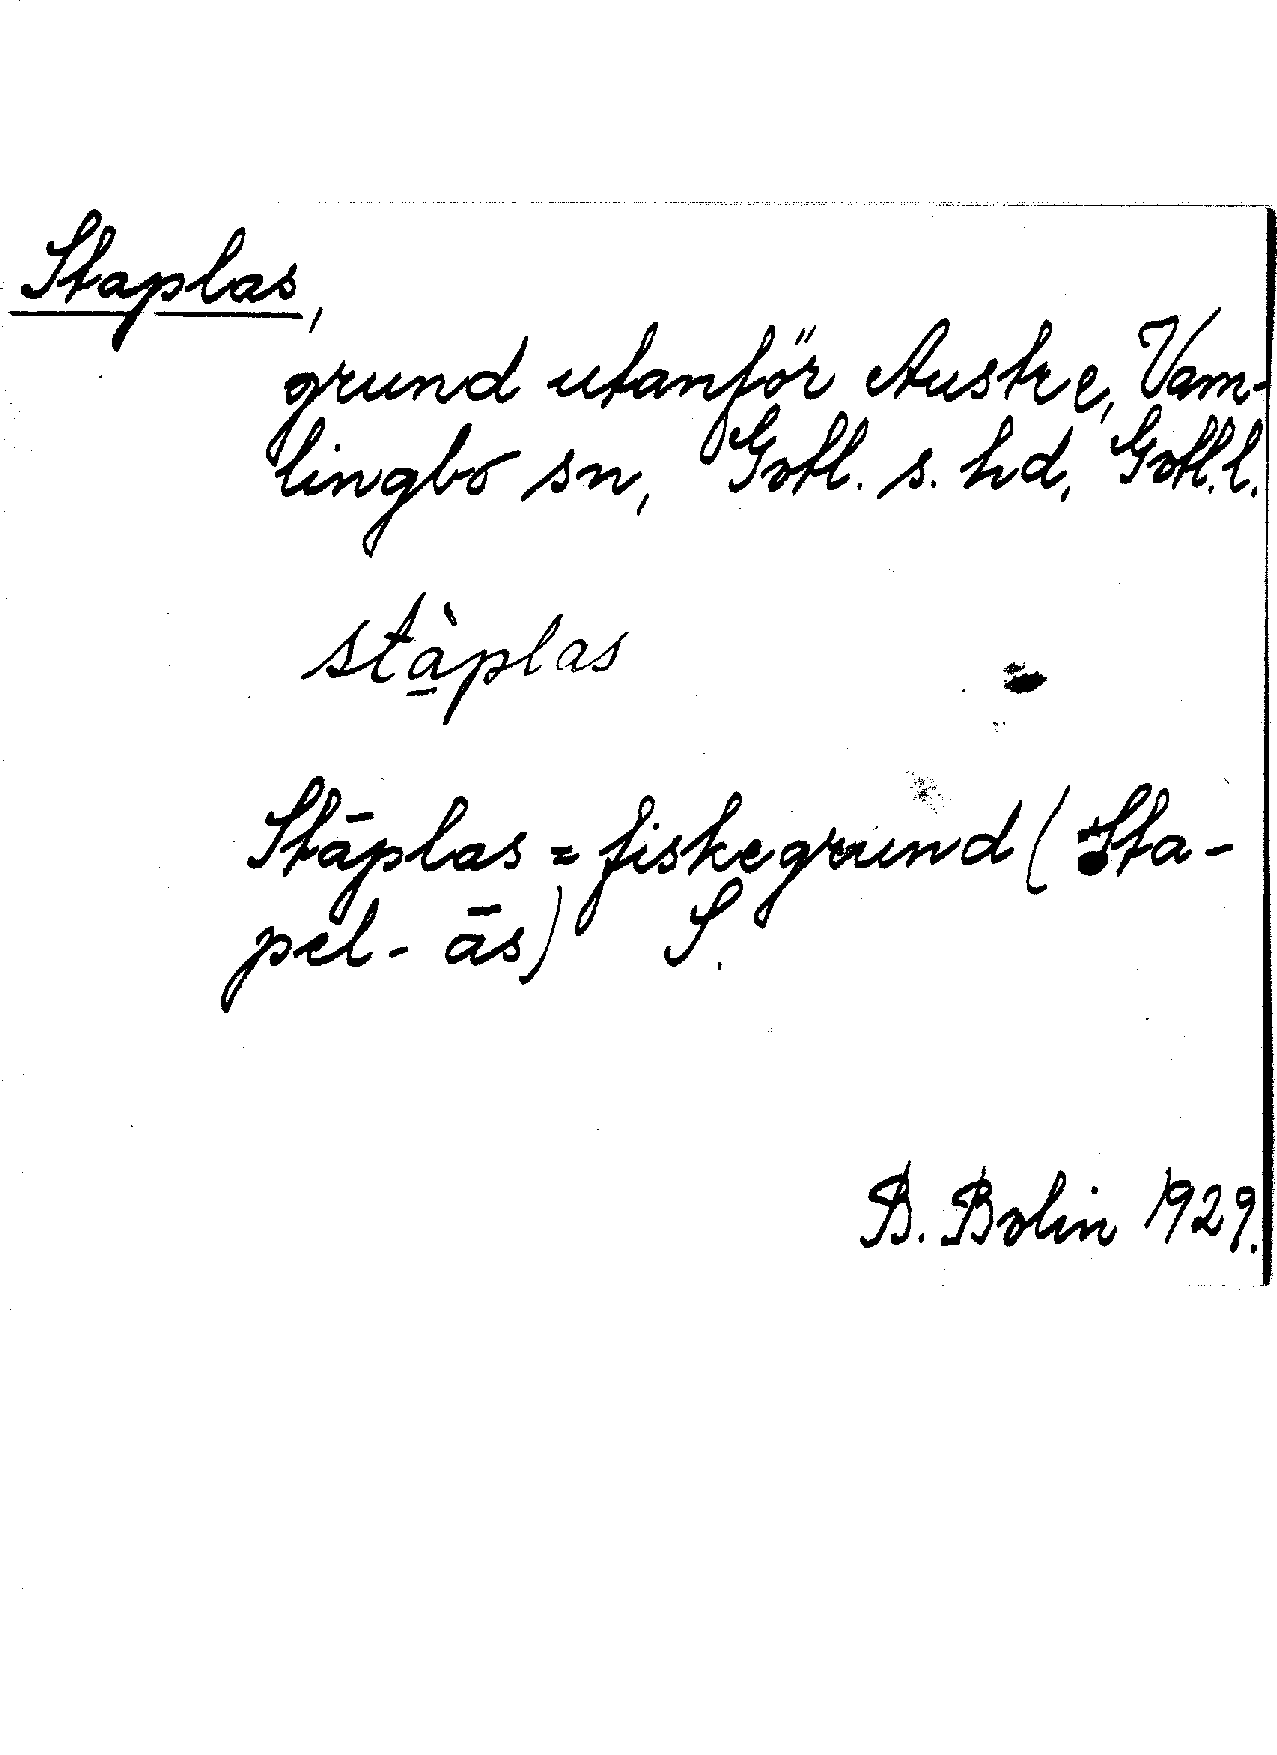 Staplas,
grund utanför Austre, Vam-
lingbo sn, Gotl. s. hd, Gotl. l.
stà̱plas
Stāplas = fiskegrund (Sta-
pel-ās) S.
B. Bolin 1929.